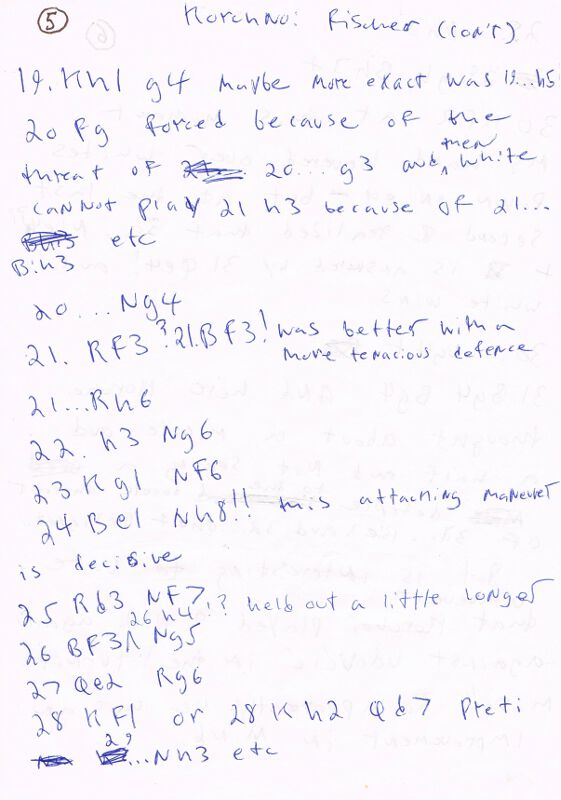 5
Korchnoi Fischer (con't)
19. Kh1 g4 maybe more exact was 19...h5
20 fg forced because of the
threat of 20...g3 and then White
cannot play 21 h3 because of 21...
B:h3 etc
20...Ng4
21. RF3? 21.BF3! was better with a
more tenacious defence
21...Rh6
22. h3 Ng6
23 Kg1 NF6
24 Be1 Nh8!! this attacking maneuver
is decisive
25 Rd3 NF7
26 h4!? held out a little longer
26 BF3 Ng5
27 Qe2 Rg6
28 KF1 or 28 Kh2 Qd7
29...Nh3 etc